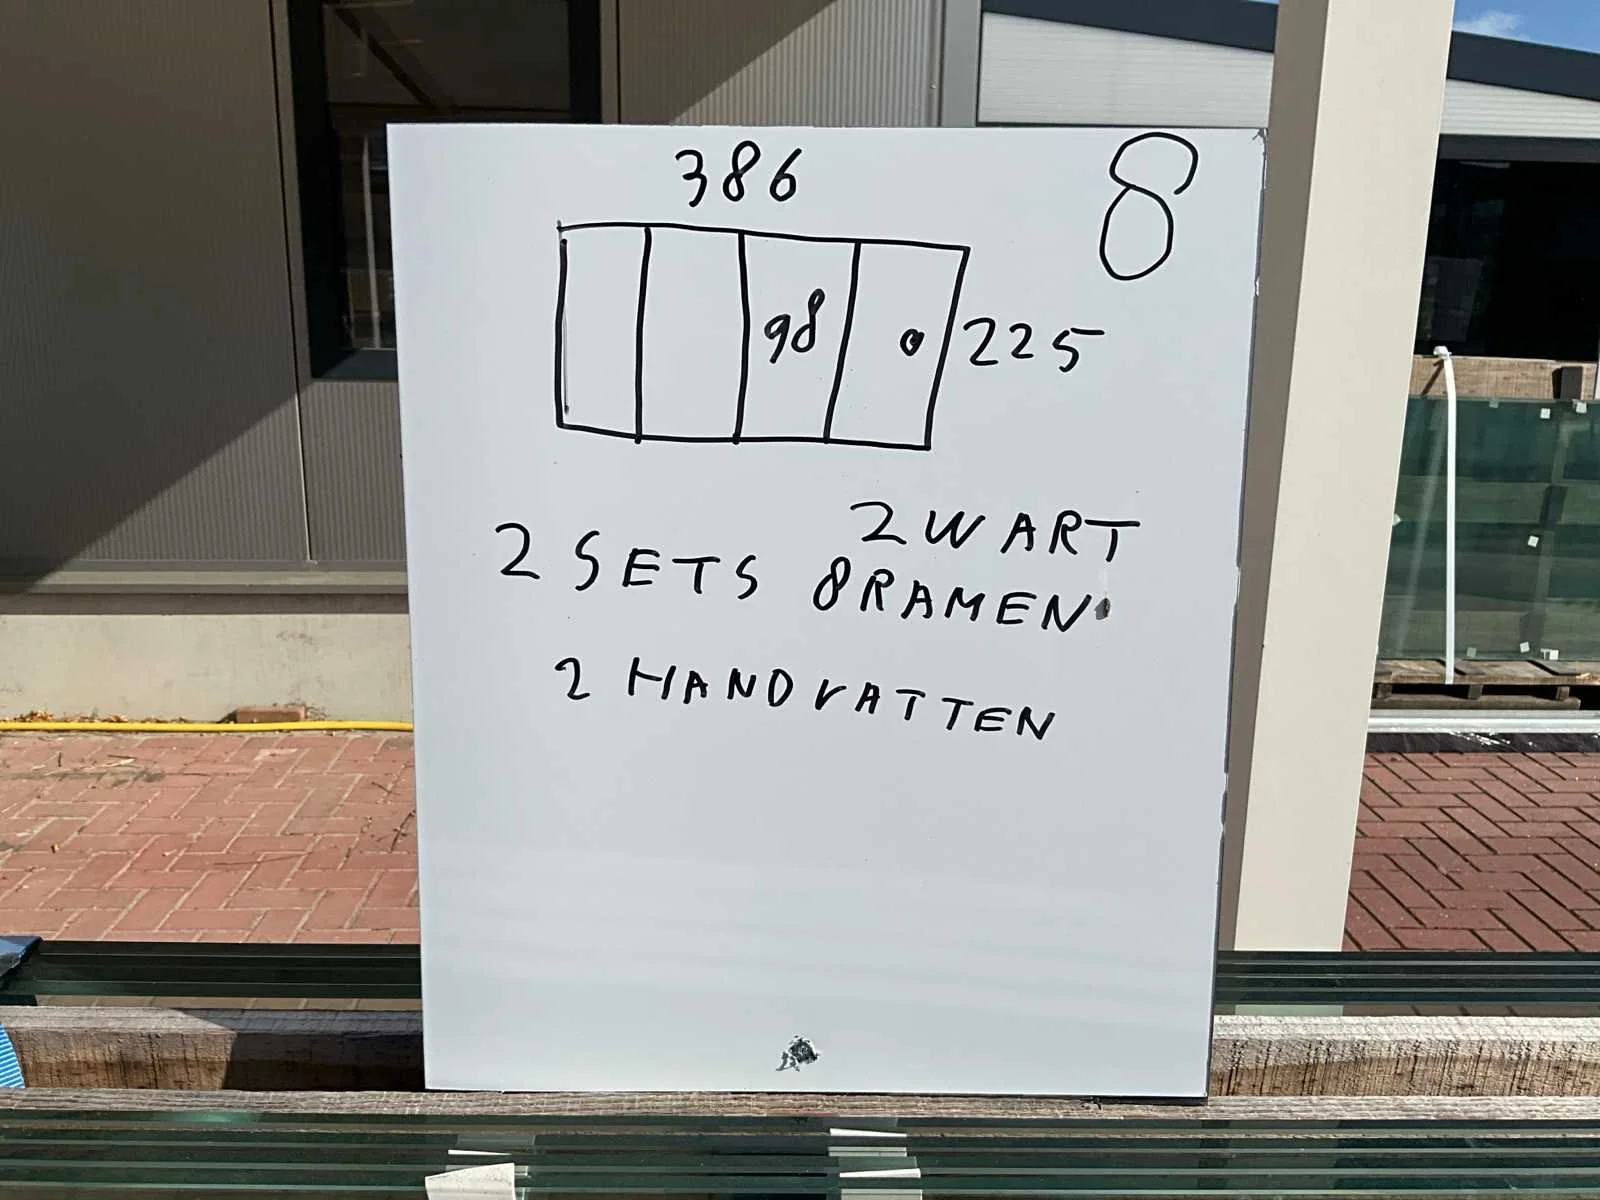 386
8
98
225
2WART
2 SETS 8RAMEN
2 HANDVATTEN